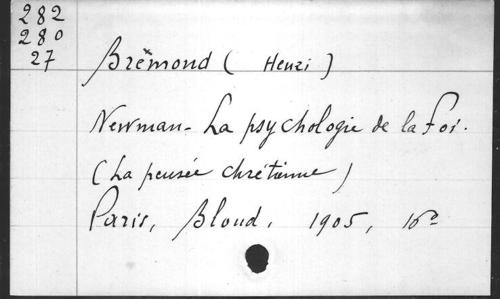 282
280
27
Brémond (Henri)
Newman - La psychologie de la Foi.
(La pensée chrétienne)
Paris, Bloud, 1905, 16º